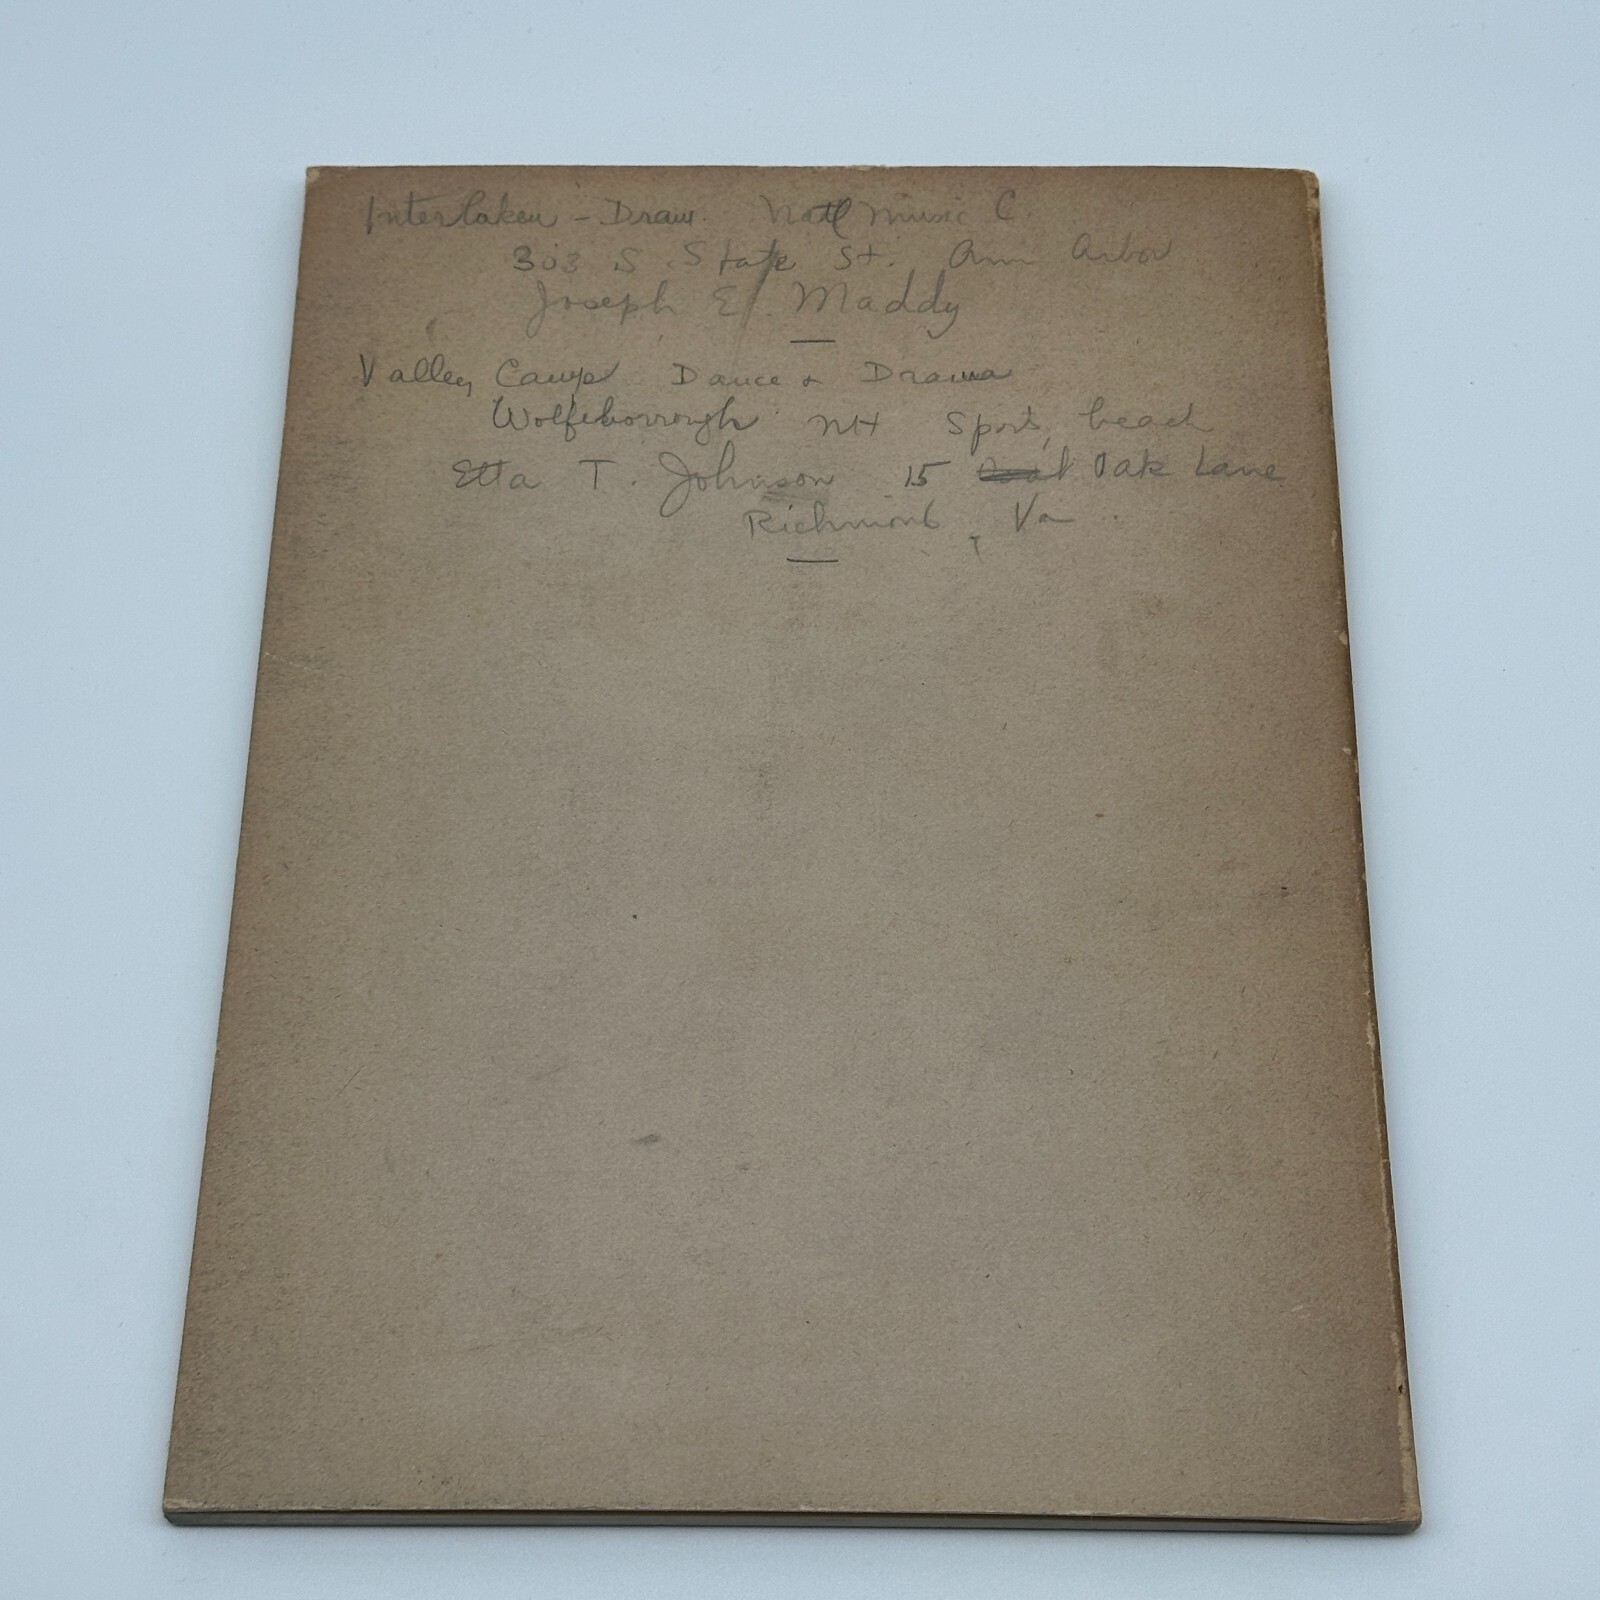 Interlaken - Dram. Natl Music C.
303 S. State St. Ann Arbor
Joseph E. Maddy
Valley Camp Dance & Drama
Wolfeborrough NH Sports, beach
Etta T. Johnson 15 Oak Lane
Richmond, Va